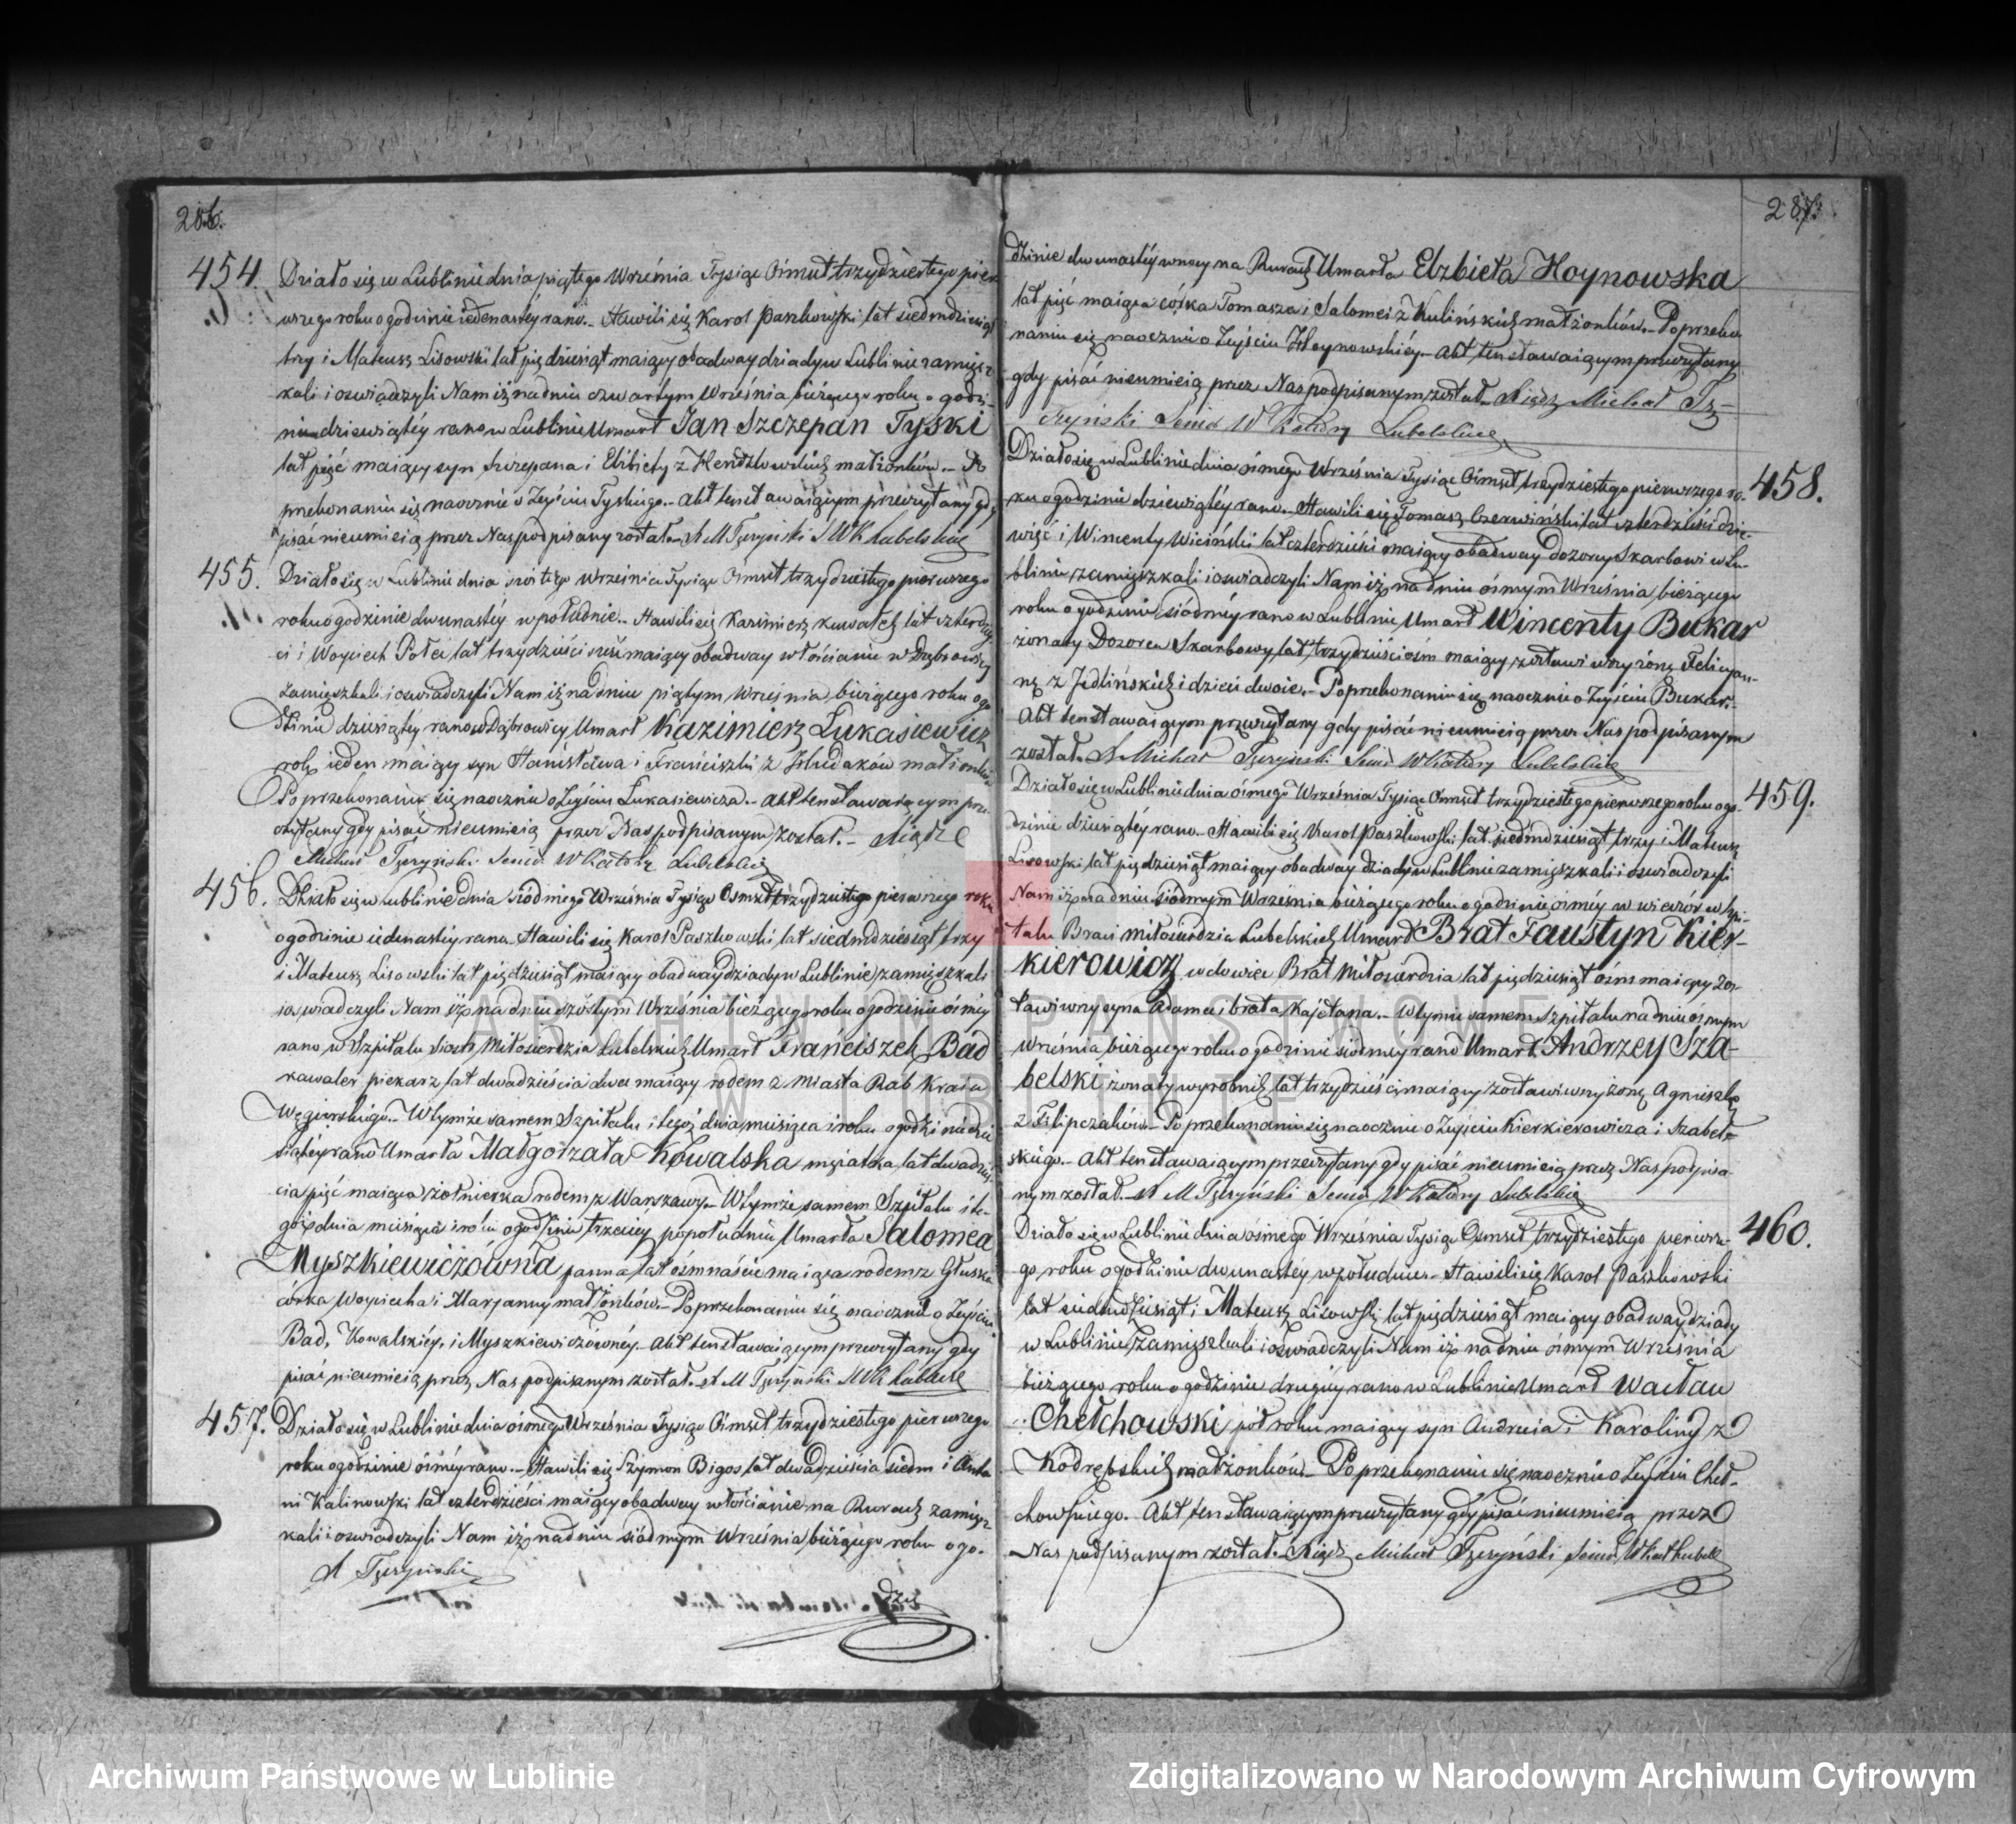 286.
454. Działo się w Lublinie dnia piątego Września Tysiąc Ośmset trzydziestego pier
wszego roku o godzinie iedenastéy rano.- Stawili się Karol Paszkowski lat siedmdziesiąt
trzy i Mateusz Lisowski lat pięćdziesiąt maiący obadway dziady w Lublinie zamiész
kali i oswiadczyli Nam iż na dniu czwartym Września bieżącego roku o godzi
nie dziewiątéy rano w Lublinie Umarł Jan Szczepan Tyski
lat pięć maiący syn Szczepana i Elżbiety z małżonków.- Po
przekonaniu się naocznie o Zeyściu Tyskiego.- Akt ten stawaiącym przeczytany gdy
pisać nieumieią przez Nas podpisany został.- X M Tyszyński S W K Lubelskiey
455. Działo się w Lublinie dnia szóstego Września Tysiąc Ośmset trzydziestego pierwszego
roku o godzinie dwunastéy w południe.- Stawili się Kazimierz Kuwałek lat czterdzieś
ci i Woyciech Połeć lat trzydzieści maiący obadway włościanie w Dąbrowicy
zamieszkali i oswiadczyli Nam iż na dniu piątym Września bieżącego roku o go
dzinie dziesiątéy rano w Dąbrowicy Umarł Kazimierz Łukasiewicz
rok ieden maiący syn Stanisława i Franciszki z małżonków
Po przekonaniu się naocznie o Zeyściu Łukasiewicza.- Akt ten stawaiącym prze
czytany gdy pisać nieumieią przez Nas podpisanym został.- Xiądz
Michał Tyszyński Senior W Katedry Lubelskiey
456. Działo się w Lublinie dnia siódmego Września Tysiąc Osmset trzydziestego pierwszego roku
o godzinie iedenastéy rano.- Stawili się Karol Paszkowski lat siedmdziesiąt trzy
i Mateusz Lisowski lat pięćdziesiąt maiący obadway dziady w Lublinie zamięszkali
i oswiadczyli Nam iż na dniu szóstym Września bieżącego roku o godzinie ósméy
rano w Szpitalu Sióstr Miłosierdzia Lubelskich Umarł Franciszek Bad
kawaler piekarz lat dwadzieścia dwa maiący rodem z Miasta Rab Kraiu
Węgierskiego.- W tymże samem Szpitalu i tegoż dnia, miesiąca i roku o godzinie dzie
siątéy rano Umarła Małgorzata Kowalska mężatka lat dwadzieś
cia pięć maiąca żołnierka rodem z Warszawy.- W tymże samem Szpitalu i te
goż dnia miesiąca i roku o godzinie trzeciey popołudniu Umarła Salomea
Myszkiewiczówna panna lat ośmnaście maiąca rodem z Głuska
córka Woyciecha i Maryanny małżonków.- Po przekonaniu się naocznie o Zeyściu
Bad, Kowalskiéy, i Myszkiewiczównéy.- Akt ten stawaiącym przeczytany gdy
pisać nieumieią przez Nas podpisanym został. X M Tyszyński S W K Lubelsk
457. Działo się w Lublinie dnia ósmego Września Tysiąc Ośmset trzydziestego pierwszego
roku o godzinie ósméy rano.- Stawili się Szymon Bigos lat dwadzieścia siedm i Anto
ni Kalinowski lat czterdzieści maiący obadway włościanie na Rurach zamięsz
kali i oswiadczyli Nam iż na dniu siódmym Września bieżącego roku o go-
X Tyszyński
dzi
287.
dzinie dwunastéy w nocy na Rurach Umarła Elżbieta Hoynowska
lat pięć maiąca córka Tomasza i Salomei z Kulińskich małżonków.- Po przeko
naniu się naocznie o Zeyściu Hoynowskiéy.- Akt ten stawaiącym przeczytany
gdy pisać nieumieią przez Nas podpisanym został.- Xiądz Michał Ty-
szyński Senior W Katedry Lubelskiey
458. Działo się w Lublinie dnia ósmego Września Tysiąc Ośmset trzydziestego pierwszego ro-
ku o godzinie dziewiątéy rano.- Stawili się Tomasz Czerwiński lat czterdzieści dzie-
więć i Wincenty Wiciński lat czterdzieści maiący obadway Dozorcy Skarbowi w Lu-
blinie zamięszkali i oswiadczyli Nam iż na dniu ósmym Września bieżącego
roku o godzinie siódméy rano w Lublinie Umarł Wincenty Bukar
żonaty Dozorca Skarbowy lat trzydzieści ośm maiący zostawiwszy żonę Felicyan-
nę z Jedlińskich i dzieci dwoie.- Po przekonaniu się naocznie o Zeyściu Bukar.-
Akt ten stawaiącym przeczytany gdy pisać nieumieią przez Nas podpisanym
został. X Michał Tyszyński Senior W Katedry Lubelskiey
459. Działo się w Lublinie dnia ósmego Września Tysiąc Ośmset trzydziestego pierwszego roku o go-
dzinie dziesiątéy rano.- Stawili się Karol Paszkowski lat siedmdziesiąt trzy i Mateusz
Lisowski lat pięćdziesiąt maiący obadway dziady w Lublinie zamięszkali i oswiadczyli
Nam iż na dniu siódmym Września bieżącego roku o godzinie ósméy w wieczór w Szpi-
talu Braci Miłosierdzia Lubelskich Umarł Brat Faustyn Kier-
kierowicz wdowiec Brat Miłosierdzia lat pięćdziesiąt ośm maiący zos-
tawiwszy syna Adama i brata Kajetana.- W tymże samem Szpitalu na dniu ósmym
Września bieżącego roku o godzinie siódméy rano Umarł Andrzey Sza-
belski żonaty wyrobnik lat trzydzieści maiący zostawiwszy żonę Agnieszkę
z Filipczaków.- Po przekonaniu się naocznie o Zeyściu Kierkierowicza i Szabel-
skiego.- Akt ten stawaiącym przeczytany gdy pisać nieumieią przez Nas podpisa-
nym został. X M Tyszyński Senior W Katedry Lubelskiey
460. Działo się w Lublinie dnia ósmego Września Tysiąc Osmset trzydziestego pierwsze-
go roku o godzinie dwunastéy w południe.- Stawili się Karol Paszkowski
lat siedmdziesiąt i Mateusz Lisowski lat pięćdziesiąt maiący obadway dziady
w Lublinie zamięszkali i oświadczyli Nam iż na dniu ósmym Września
bieżącego roku o godzinie drugiéy rano w Lublinie Umarł Wacław
Chełchowski pół roku maiący syn Andrzeia i Karoliny z
Kodrębskich małżonków.- Po przekonaniu się naocznie o Zeyściu Cheł-
chowskiego. Akt ten stawaiącym przeczytany gdy pisać nieumieią przez
Nas podpisanym został. Xiądz Michał Tyszyński Senior W Kat Lubelk
ARCHIWUM PAŃSTWOWE
W LUBLINIE
Archiwum Państwowe w Lublinie
Zdigitalizowano w Narodowym Archiwum Cyfrowym